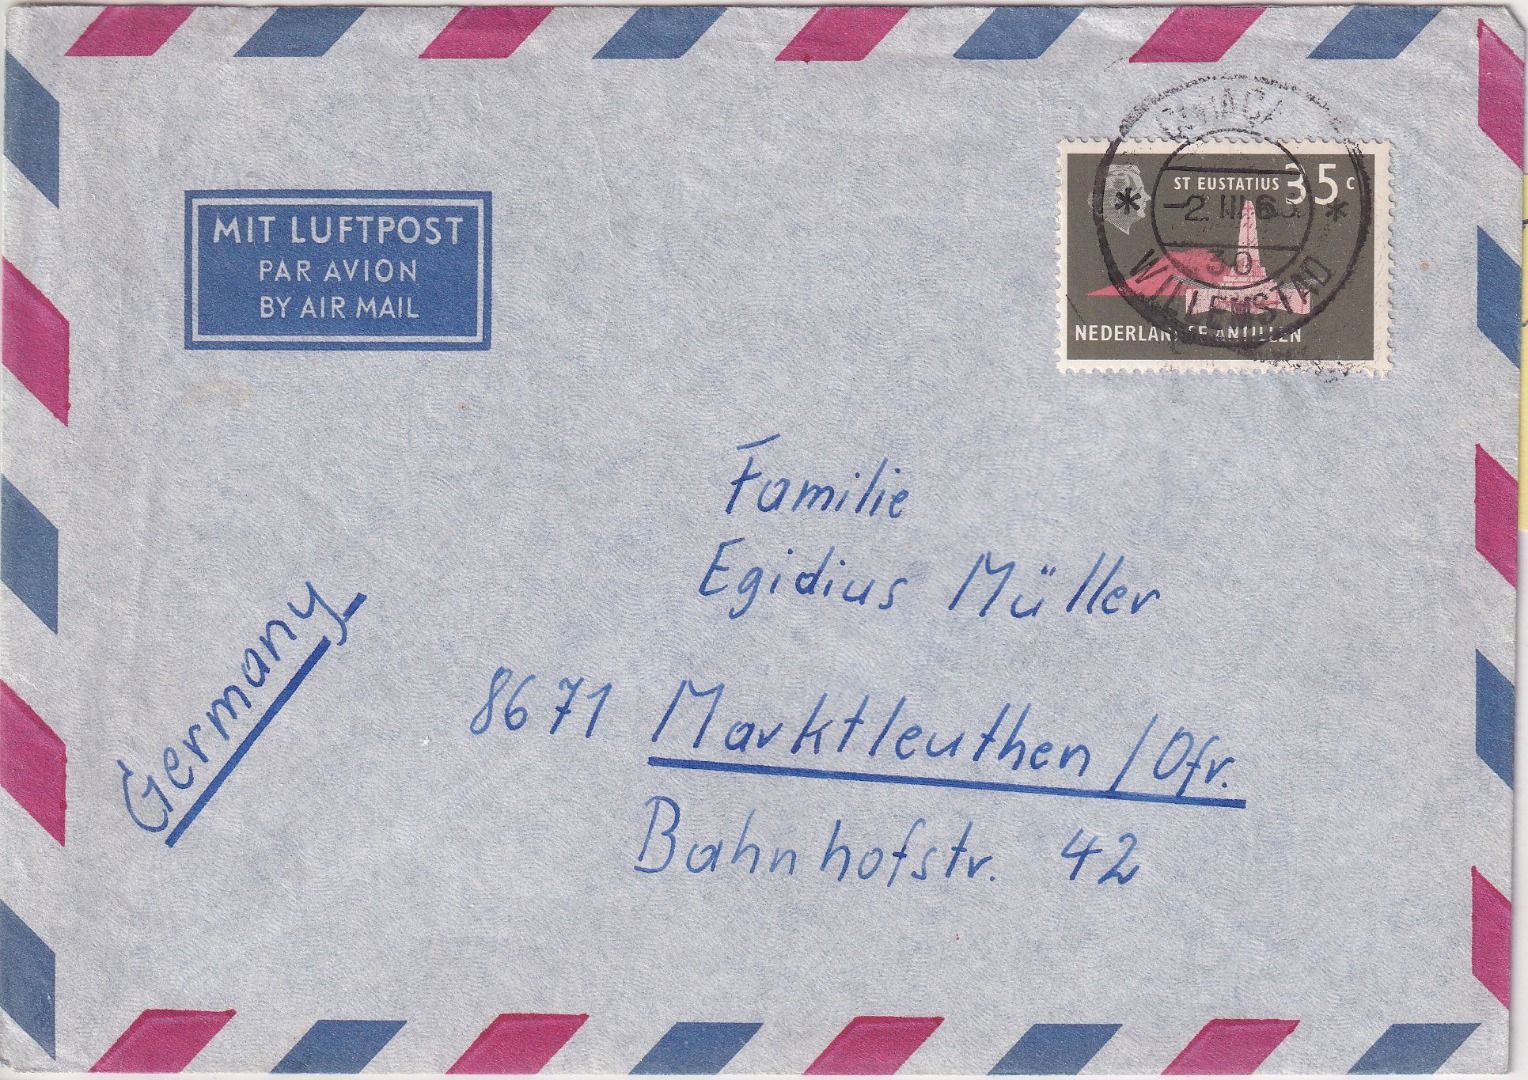 MIT LUFTPOST
PAR AVION
BY AIR MAIL
ST EUSTATIUS 35 c
* -2. III 6 *
30
WILLEMSTAD
NEDERLANDSE ANTILLEN
Familie
Egidius Müller
8671 Marktleuthen / Ofr.
Bahnhofstr. 42
Germany